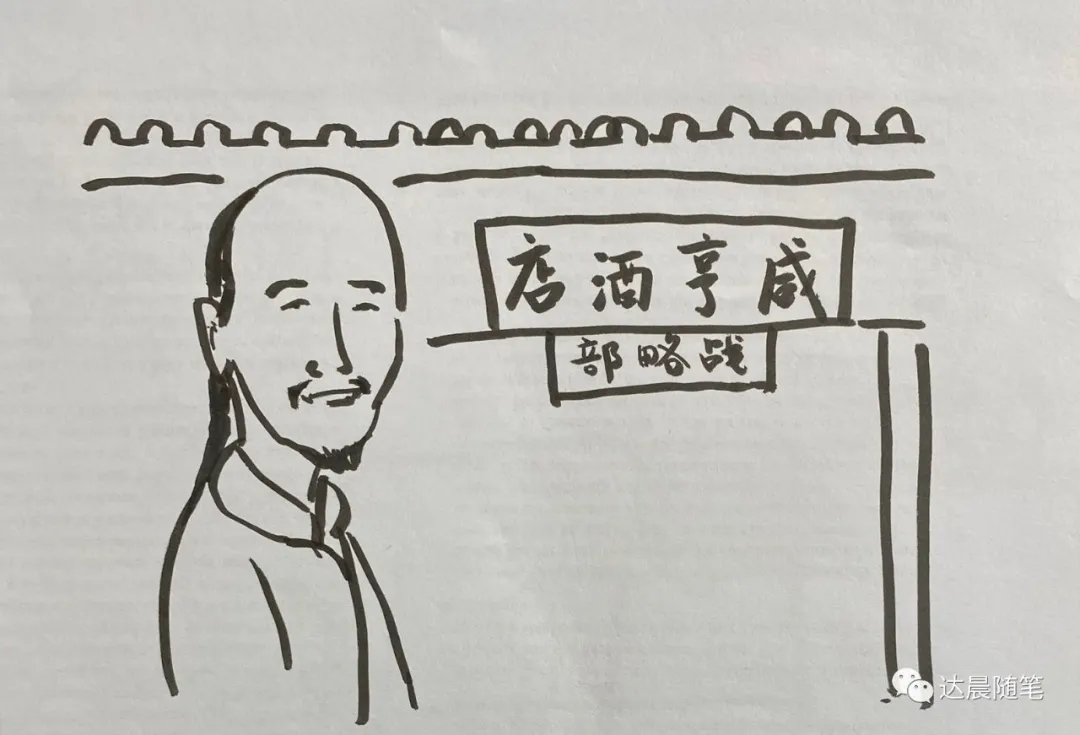 咸亨酒店
战略部
达晨随笔